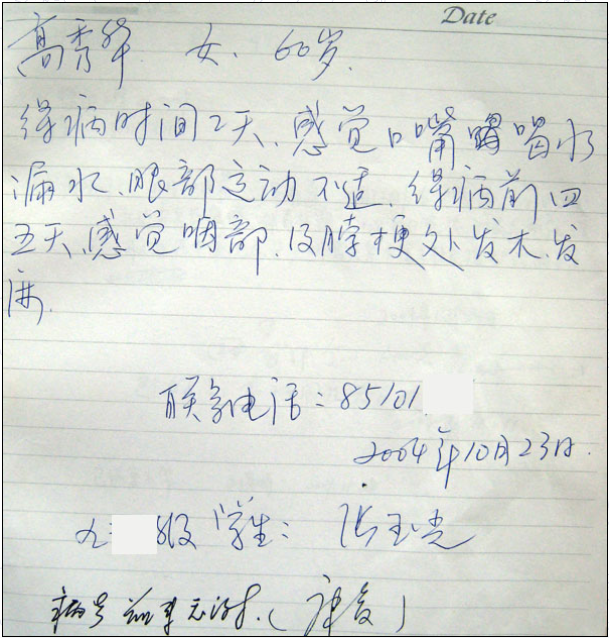 Date
高秀华 女、60岁.
得病时间2天、感觉口嘴喝水
漏水、眼部运动不适、得病前四
五天、感觉咽部、及脖梗处发木、发
麻.
联系电话:85101
2004年10月23日.
级学生: 张玉光
(康复)